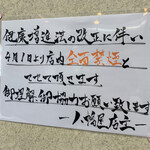 健康増進法の改正に伴い
4月1日より店内全面禁煙と
させて頂きます
御理解、御協力お願い致します